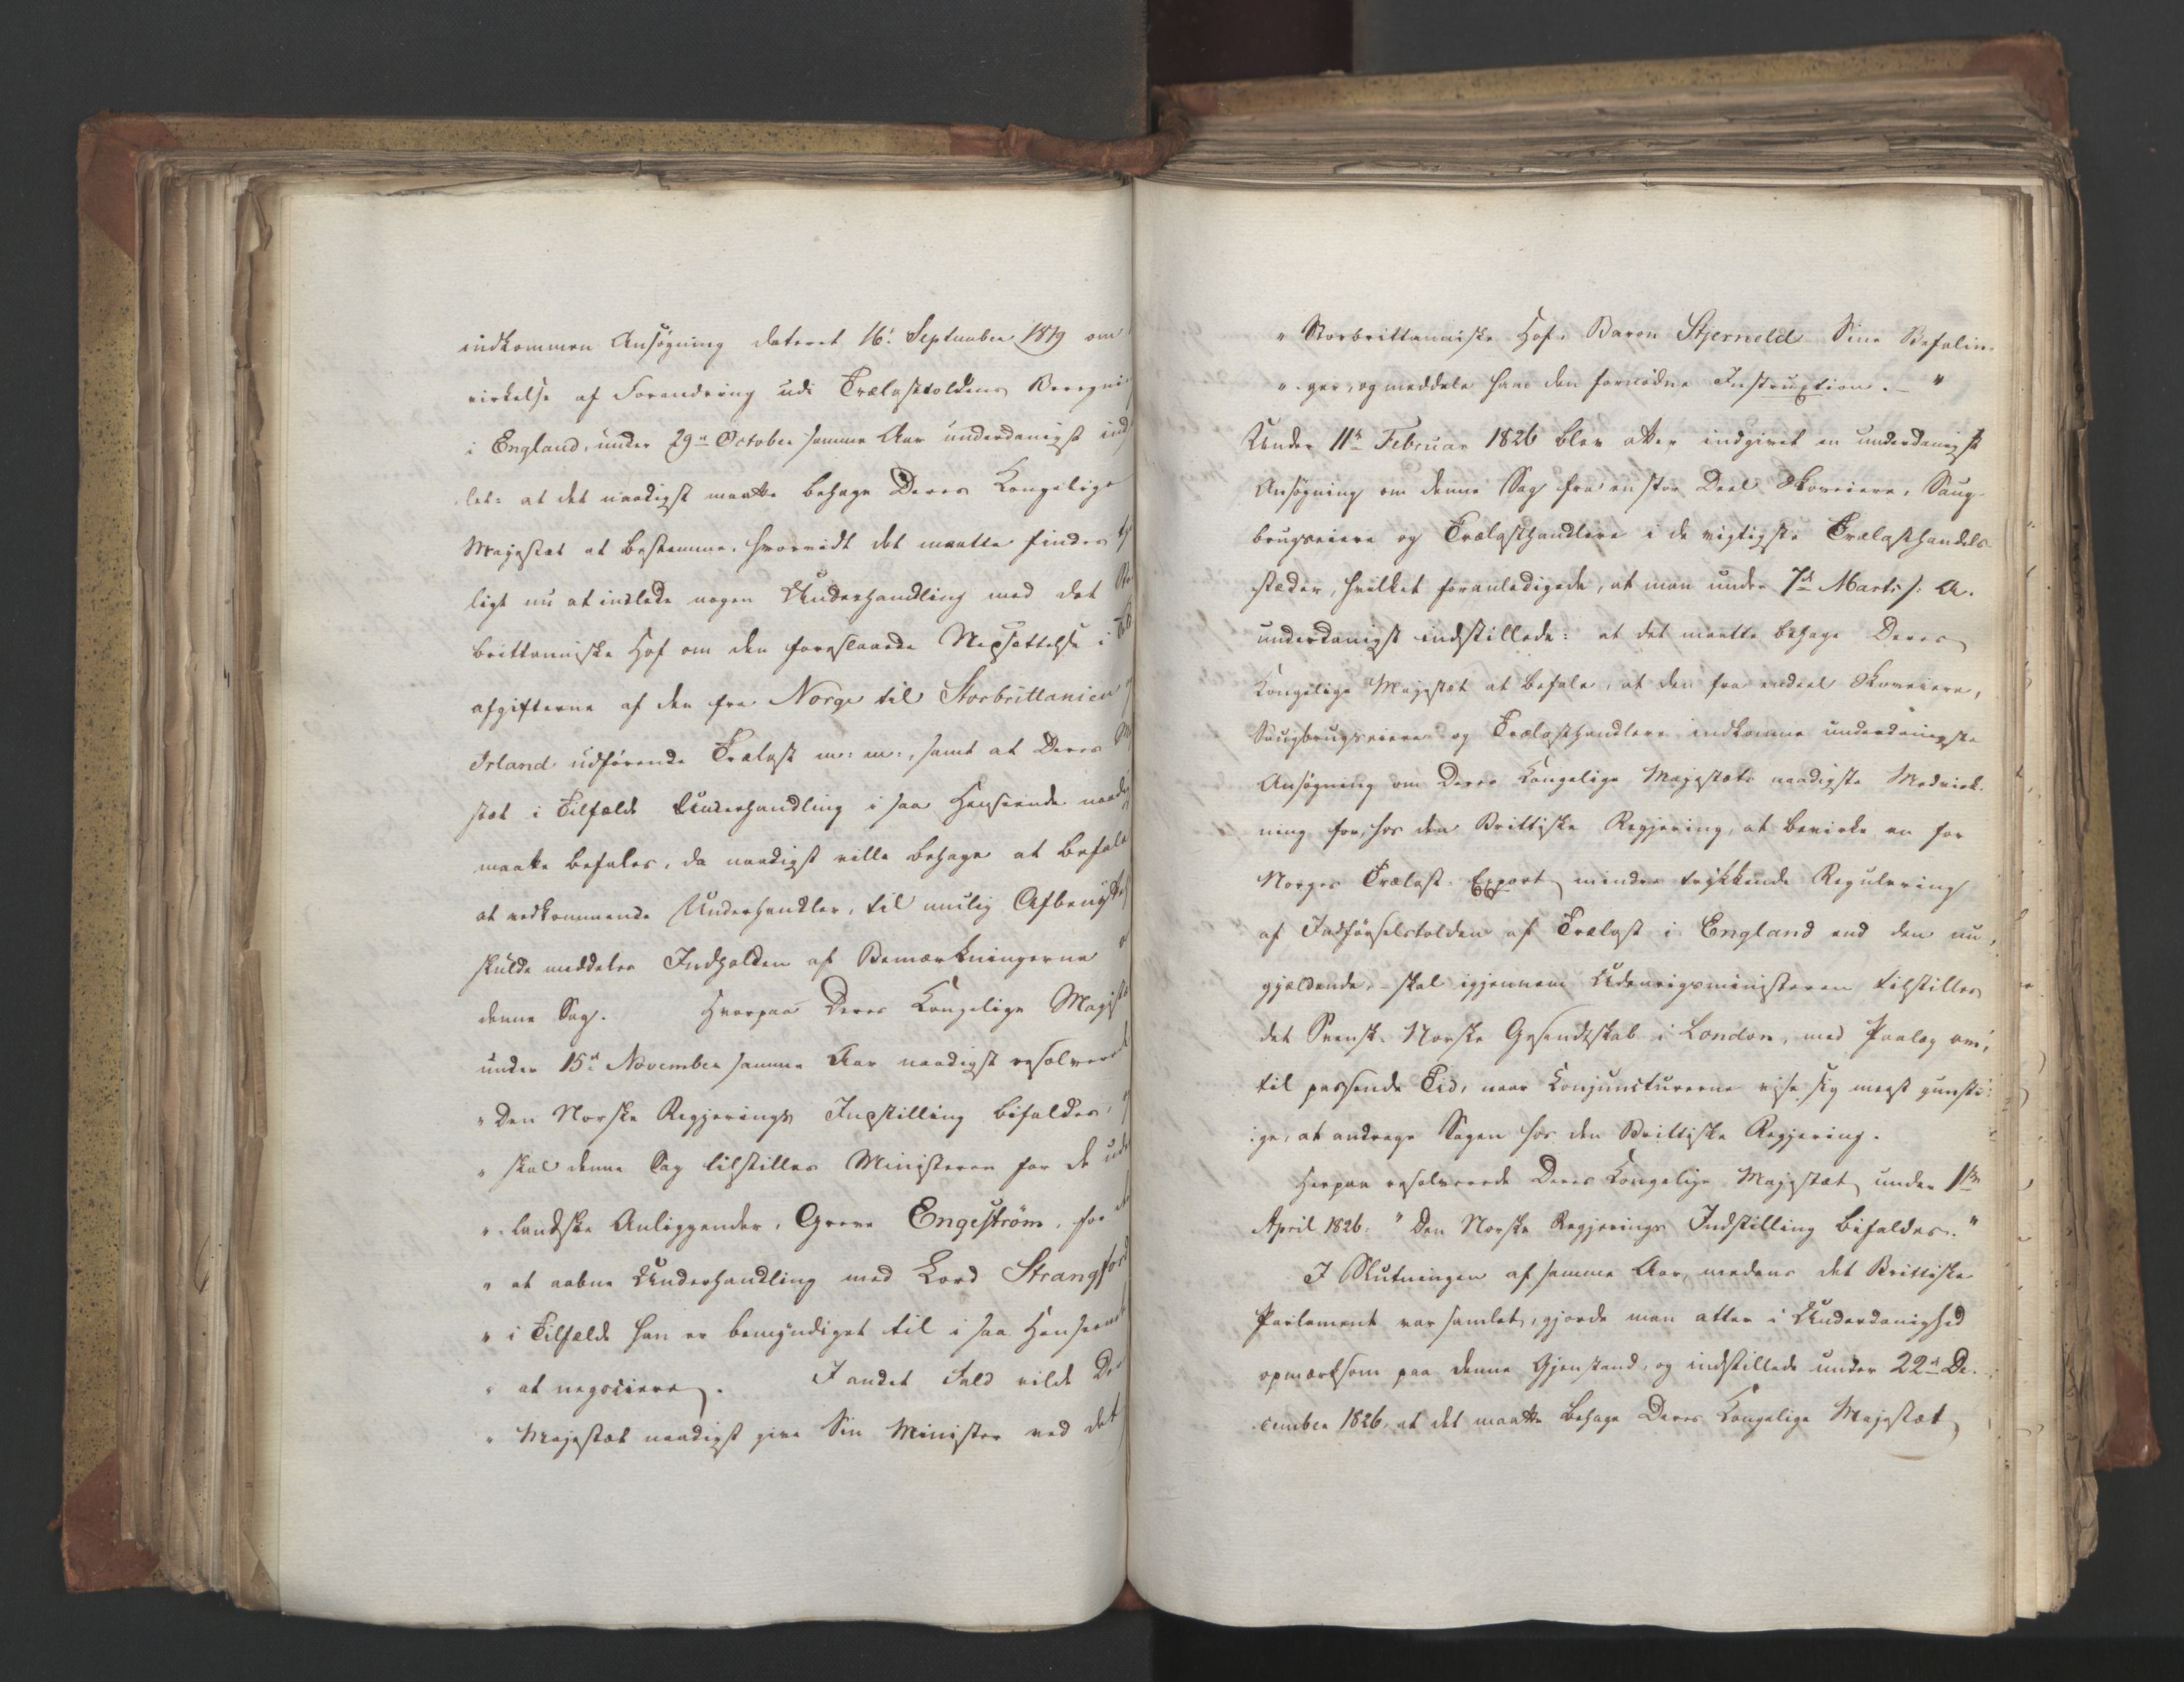 indkommen Ansøgning dateret 16: September 1819 om
virkelse af Forandring udi Trælasttoldens Beregni
i England, under 29de October samme Aar underdanigst ind
let: at det naadigst maatte behage Deres Kongelige
Majestæt at bestemme, hvorvidt det maatte findes
ligt nu at indlede nogen Underhandling med det
brittanniske Hof om den foreslaaede Nedsættelse i
afgifterne af den fra Norge til Storbrittanien
Irland udførende Trælast m: m:, samt at Deres
stæt i Tilfælde Underhandling i saa Henseende naadi
maatte befales, da naadigst ville behage at befale
at vedkommende Underhandler, til muelig Afbenyttel
skulde meddeles Indholden af Bemærkningerne
denne Sag. Hvorpaa Deres Kongelige Majestæ
under 15de November samme Aar naadigst resolverede
"Den Norske Regjerings Indstilling bifaldes,
" skal denne Sag tilstilles Ministeren for de ude
" landske Anliggender, Greve Engeström, for at
" at aabne Underhandling med Lord Strangford
" i Tilfælde han er bemyndiget til i saa Henseende
" at negociere. I andet Fald vilde De
" Majestæt naadigst give Sin Minister ved det
" Storbrittanniske Hof, Baron Stjerneld Sine Befalin-
" ger, og meddele ham den fornødne Instruxtion. - "
Under 11te Februar 1826 blev atter indgivet en underdanigst
Ansøgning om denne Sag fra en stor Deel Skoveiere, Saug-
brugseiere og Trælasthandlere i de vigtigste Trælasthandels-
stæder, hvilket foranledigede, at man under 7de Marts s: A.
underdanigst indstillede: at det maatte behage Deres
Kongelige Majestæt at befale, at den fra endeel Skoveiere,
Saugbrugseiere og Trælasthandlere indkomne underdanigste
Ansøgning om Deres Kongelige Majestæts naadigste Medvirk-
ning for, hos den Brittiske Regjering, at bevirke en for
Norges Trælast-Export mindre trykkende Regulering
af Indførselstolden af Trælast i England end den nu,
gjældende, - skal igjennem Udenrigsministeren tilstilles
det Svensk-Norske Gesandtskab i London, med Paalæg om,
til passende Tid, naar Konjuncturerne vise sig meest gunsti-
ge, at andrage Sagen hos den Brittiske Regjering.
Herpaa resolverede Deres Kongelige Majestæt under 1ste
April 1826: "Den Norske Regjerings Indstilling bifaldes."
I Slutningen af samme Aar, medens det Brittiske
Parlament var samlet, gjorde man atter i Underdanighed
opmærksom paa denne Gjenstand, og indstillede under 22de De-
cember 1826, at det maatte behage Deres Kongelige Majestæt